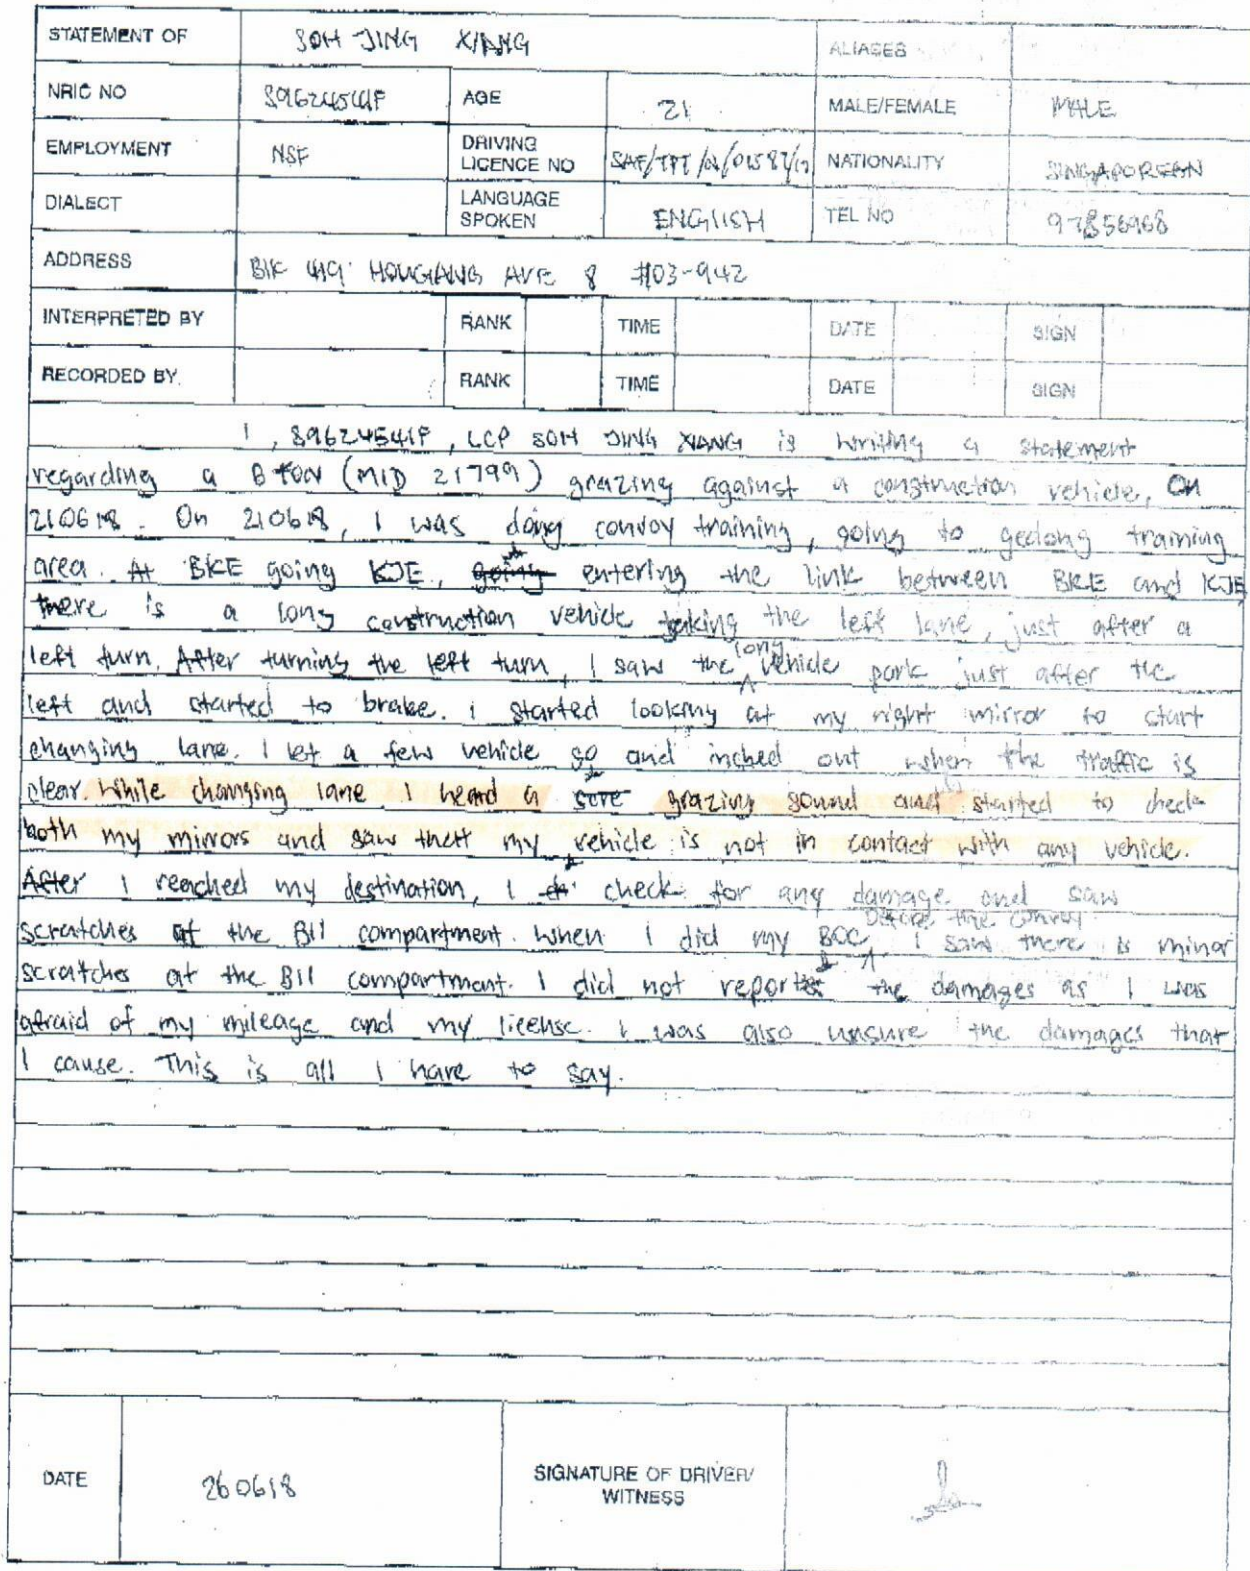 STATEMENT OF SOH JING XIANG ALIASES
NRIC NO S9624541F AGE 21 MALE/FEMALE MALE
EMPLOYMENT NSF DRIVING LICENCE NO NATIONALITY SINGAPOREAN
DIALECT LANGUAGE SPOKEN ENGLISH TEL NO 97856968
ADDRESS BLK 419 HOUGANG AVE 8 #03-942
INTERPRETED BY RANK TIME DATE SIGN
RECORDED BY RANK TIME DATE SIGN
I, S9624541F, LCP SOH JING XIANG is writing a statement
regarding a (MID 21799) grazing against a construction vehicle, on
210618. On 210618, I was doing convoy training, going to gedong training
area. At BKE going KJE, going entering the link between BKE and KJE
there is a long construction vehicle taking the left lane, just after a
left turn. After turning the left turn, I saw the long vehicle park just after the
left and started to brake. I started looking at my right mirror to start
changing lane. I let a few vehicle go and inched out when the traffic is
clear. While changing lane I heard a grazing sound and started to check
both my mirrors and saw that my vehicle is not in contact with any vehicle.
After I reached my destination, I check for any damage and saw
scratches at the Bii compartment. When I did my BOC before the convoy I saw there is minor
scratches at the Bii compartment. I did not report the damages as I was
afraid of my mileage and my license. I was also unsure the damages that
I cause. This is all I have to say.
DATE 260618 SIGNATURE OF DRIVER/ WITNESS